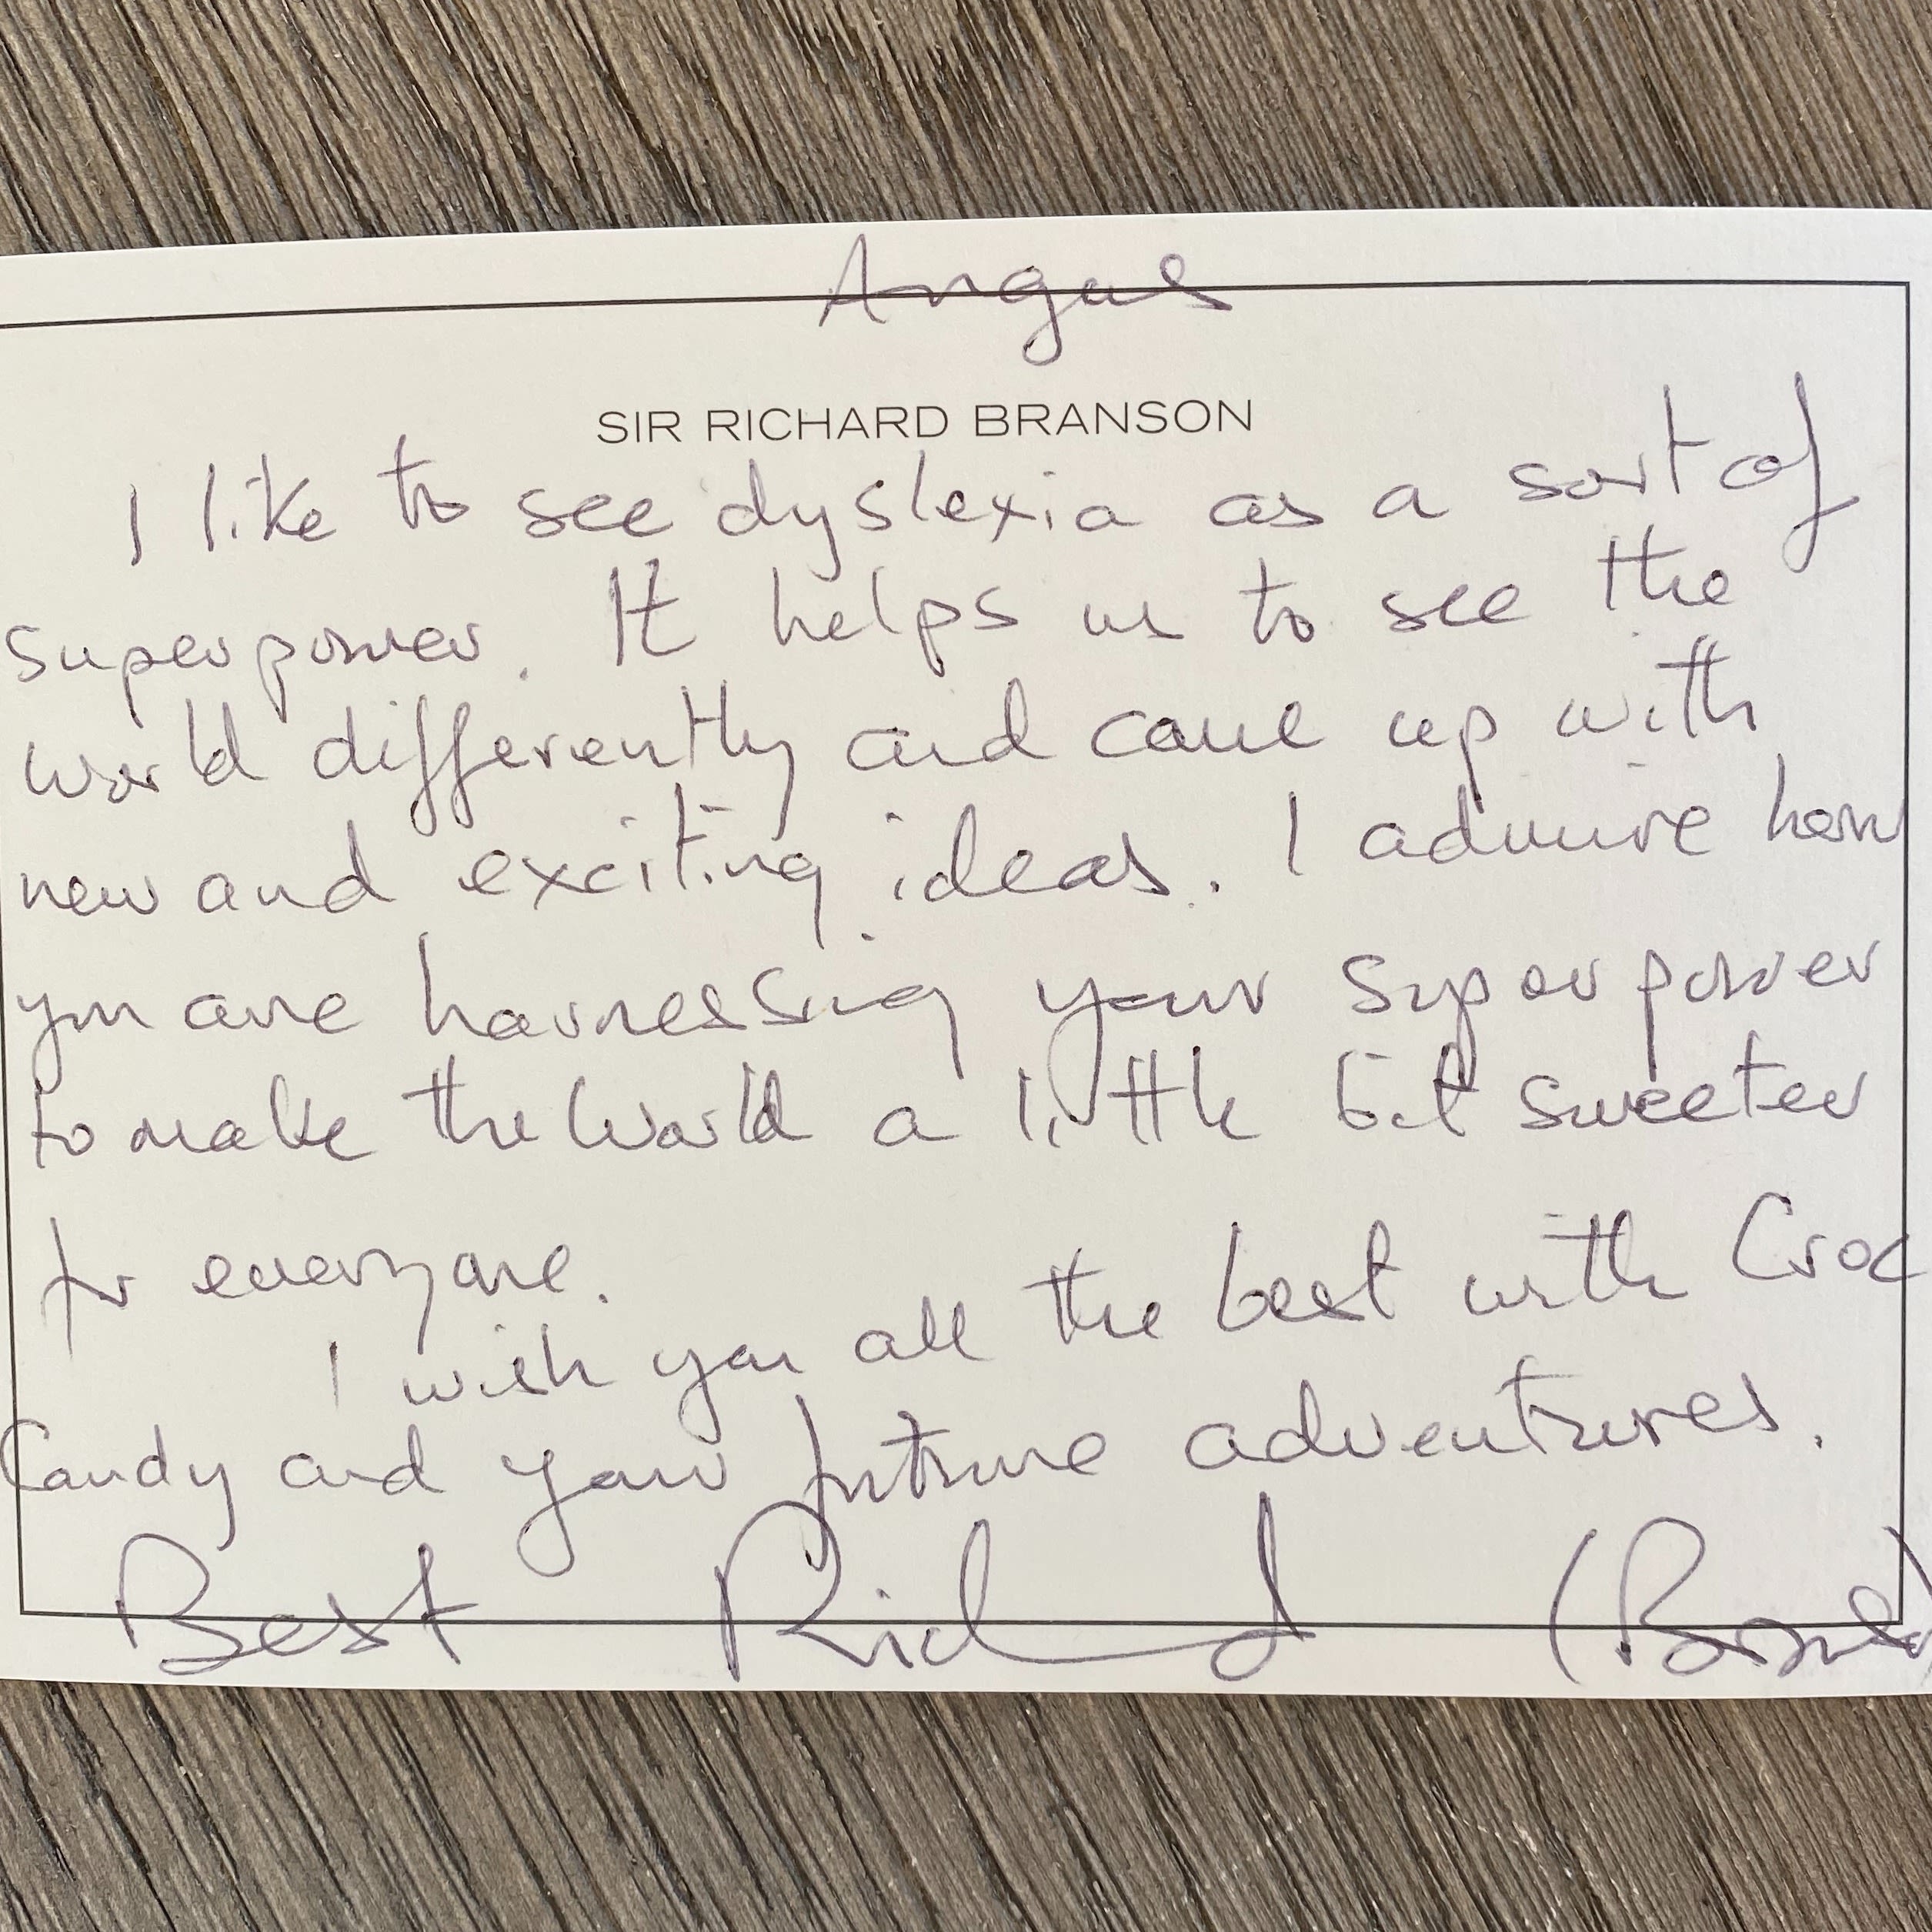 Angus
SIR RICHARD BRANSON
I like to see dyslexia as a sort of
superpower. It helps us to see the
world differently and come up with
new and exciting ideas. I admire how
you are harnessing your superpower
to make the world a little bit sweeter
for everyone.
I wish you all the best with Croc
Candy and your future adventures.
Best Richard (Branson)